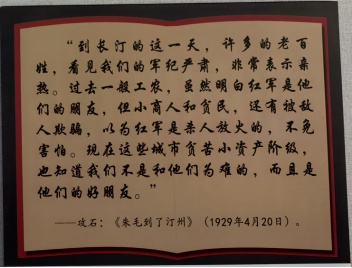 “到长汀的这一天，许多的老百
姓，看见我们的军纪严肃，非常表示亲
热。过去一般工农，虽然明白红军是他
们的朋友，但小商人和贫民，还有被敌
人欺骗，以为红军是杀人放火的，不免
害怕。现在这些城市贫苦小资产阶级，
也知道我们不是和他们为难的，而且是
他们的好朋友。”
——攻石：《朱毛到了汀州》（1929年4月20日）。